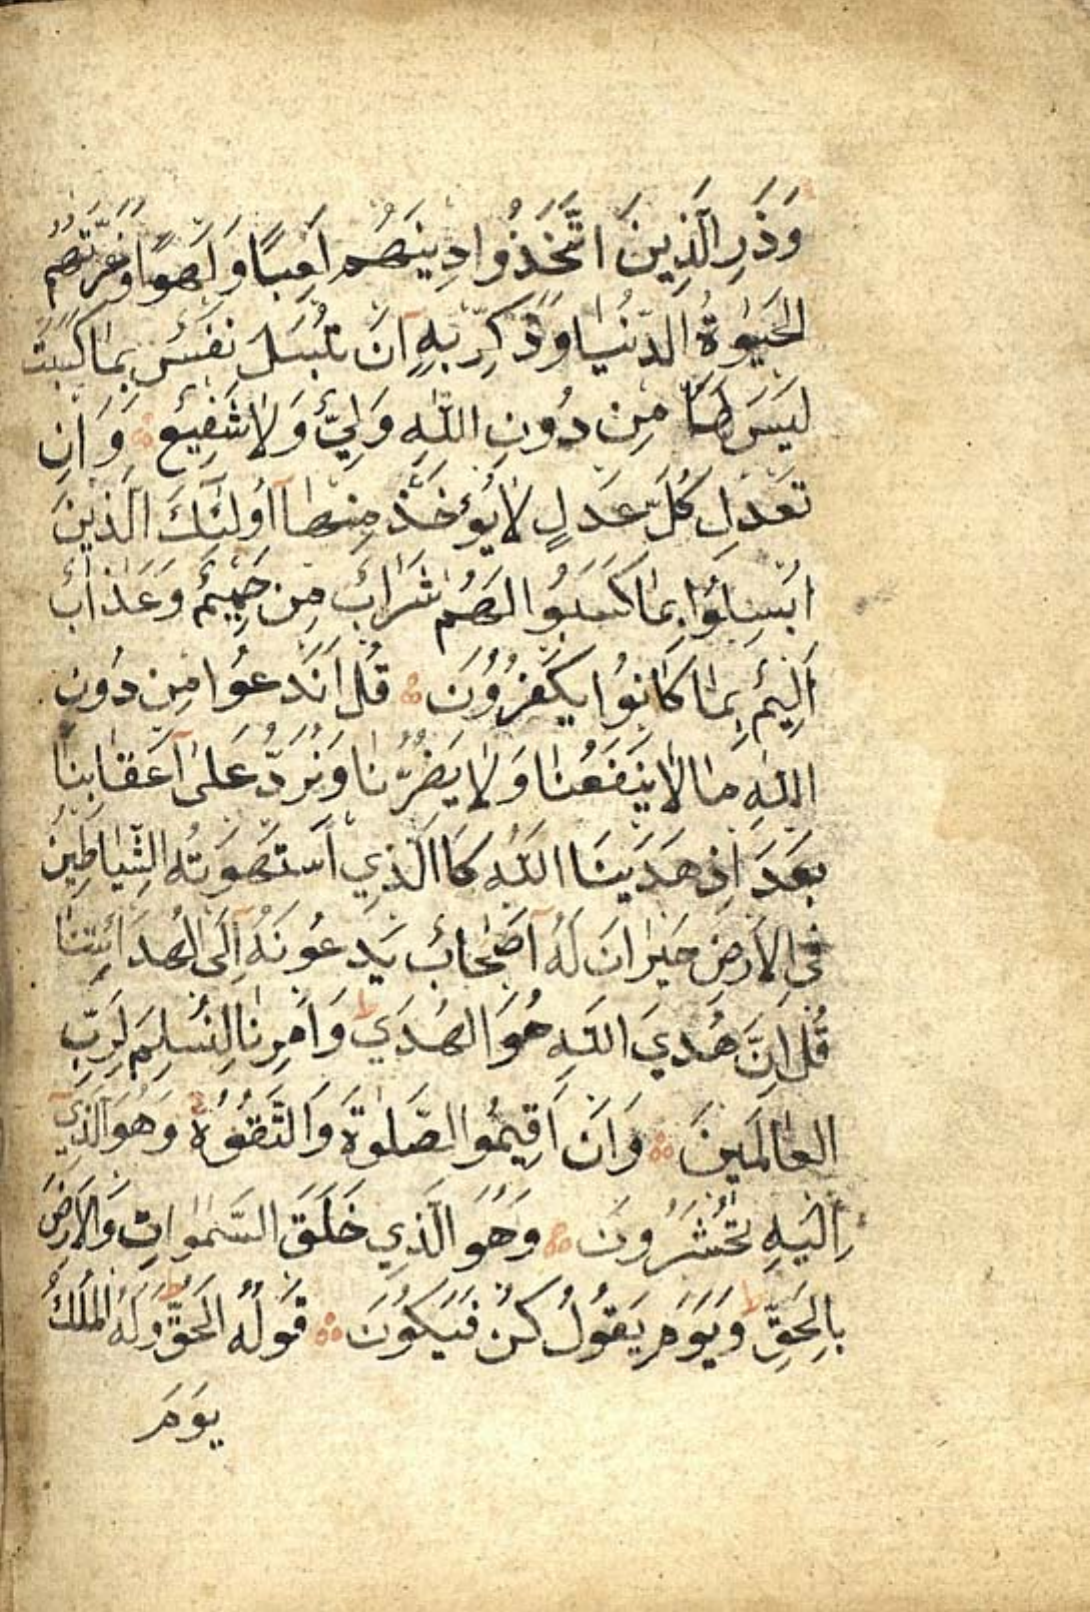 وَذَرِ الَّذِينَ اتَّخَذُوا دِينَهُم لَعِبًا وَلَهوًا وَغَرَّتهُمُ
الحَيٰوةُ الدُّنيَا وَذَكِّر بِهِ اَن تُبسَلَ نَفسٌ بِمَا كَسَبَت
لَيسَ لَهَا مِن دُونِ اللّٰهِ وَلِيٌّ وَلَا شَفِيعٌ وَاِن
تَعدِل كُلَّ عَدلٍ لَا يُؤخَذ مِنهَا اُولٰئِكَ الَّذِينَ
اُبسِلُوا بِمَا كَسَبُوا لَهُم شَرَابٌ مِن حَمِيمٍ وَعَذَابٌ
اَلِيمٌ بِمَا كَانُوا يَكفُرُونَ قُل اَنَدعُوا مِن دُونِ
اللّٰهِ مَا لَا يَنفَعُنَا وَلَا يَضُرُّنَا وَنُرَدُّ عَلىٰ اَعقَابِنَا
بَعدَ اِذ هَدَينَا اللّٰهُ كَاالَّذِي استَهوَتهُ الشَّيَاطِينُ
فِي الاَرضِ حَيرَانَ لَهُ اَصحَابٌ يَدعُونَهُ اِلَى الهُدَ ائتِنَا
قُل اِنَّ هُدَي اللّٰهِ هُوَ الهُدَي وَاُمِرنَا لِنُسلِمَ لِرَبِّ
العَالَمِينَ وَاَن اَقِيمُوا الصَّلٰوةَ وَالتَّقُوُهُ وَهُوَ الَّذِي
اِلَيهِ تُحشَرُونَ وَهُوَ الَّذِي خَلَقَ السَّمٰوَاتِ وَالاَرضَ
بِالحَقِّ وَيَومَ يَقُولُ كُن فَيَكُونَ قَولُهُ الحَقُّ وَلَهُ المُلكُ
يَومَ